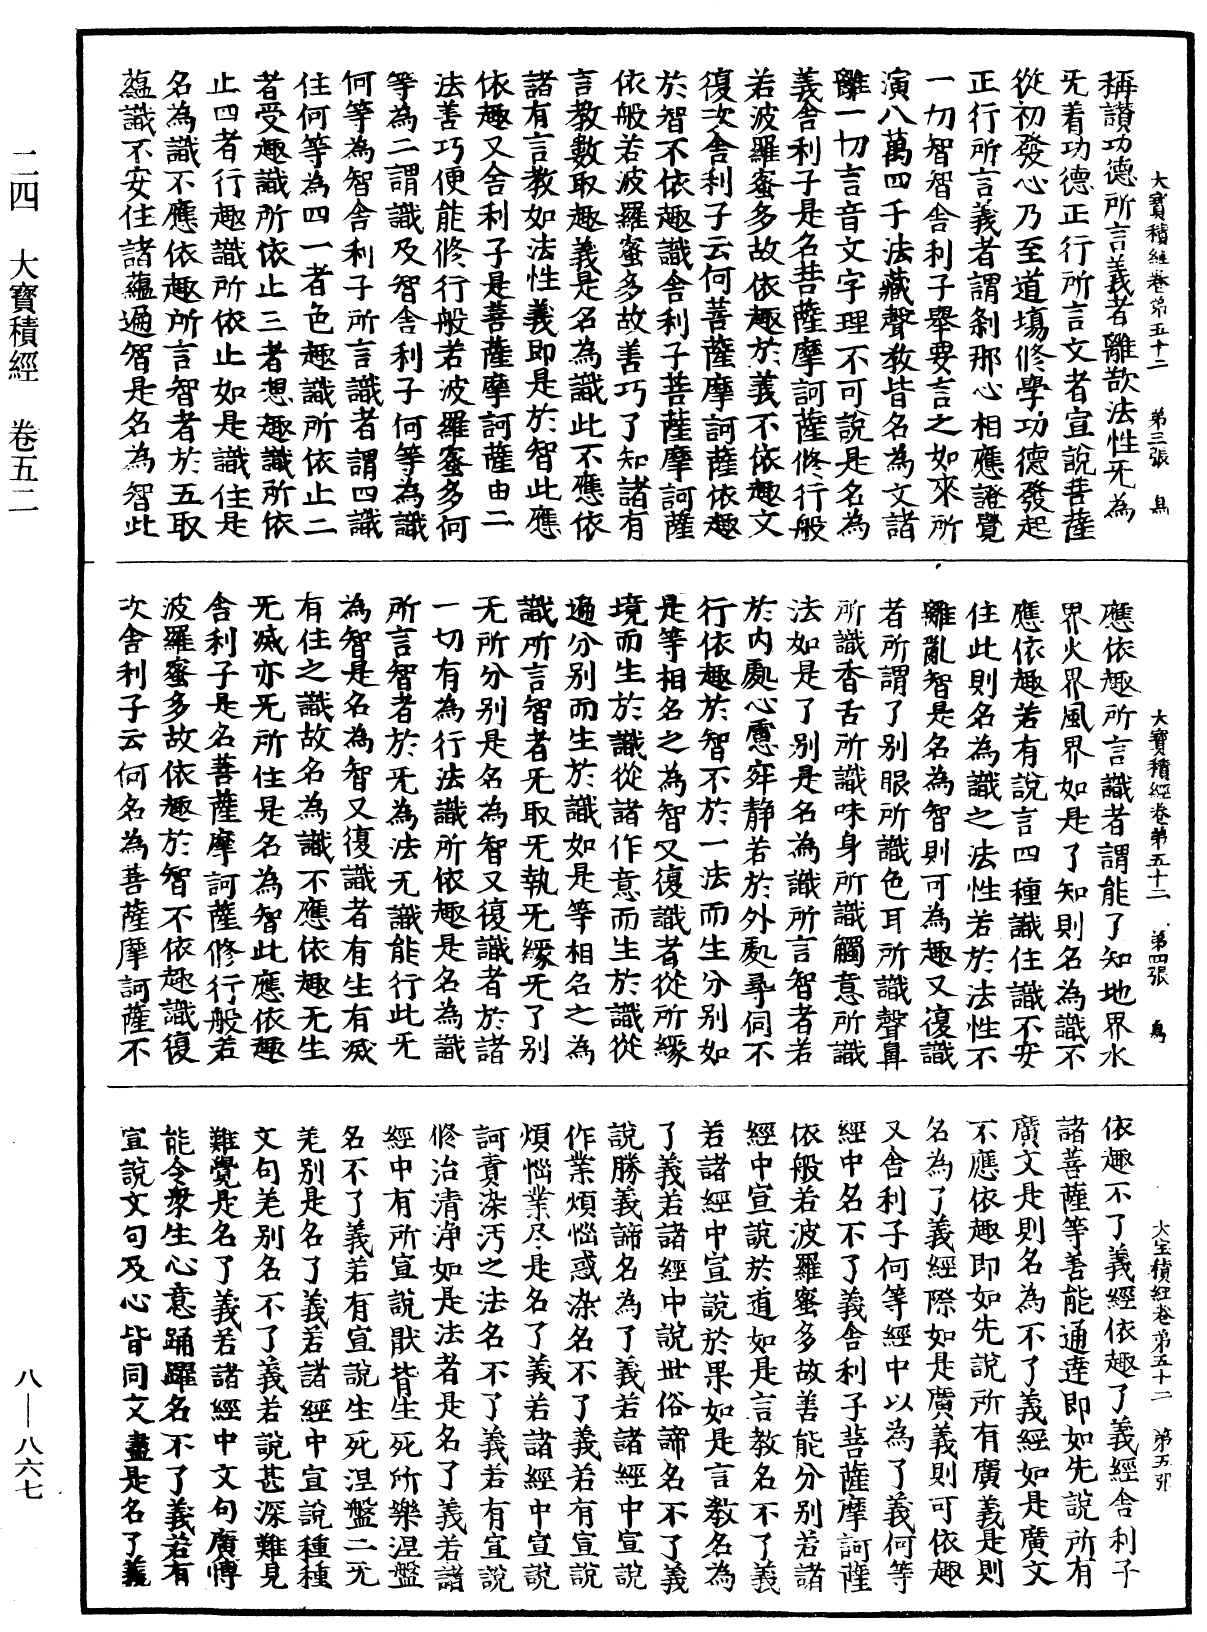 稱讃功德所言義者離歎法性无為
无着功德正行所言文者宣說菩薩
從初發心乃至道場修學功德發起
正行所言義者謂刹那心相應證覺
一切智智舍利子舉要言之如來所
演八萬四千法藏聲教皆名為文諸
離一切言音文字理不可說是名為
義舍利子是名菩薩摩訶薩修行般
若波羅蜜多故依趣於義不依趣文
復次舍利子云何菩薩摩訶薩依趣
於智不依趣識舍利子菩薩摩訶薩
依般若波羅蜜多故善巧了知諸有
言教數取趣義是名為識此不應依
諸有言教如法性義即是於智此應
依趣又舍利子是菩薩摩訶薩由二
法善巧便能修行般若波羅蜜多何
等為二謂識及智舍利子何等為識
何等為智舍利子所言識者謂四識
住何等為四一者色趣識所依止二
者受趣識所依止三者想趣識所依
止四者行趣識所依止如是識住是
名為識不應依趣所言智者於五取
蘊識不安住諸蘊遍智是名為智此
大寶積經卷第五十二 第三張 鳥
應依趣所言識者謂能了知地界水
界火界風界如是了知則名為識不
應依趣若有說言四種識住識不安
住此則名為識之法性若於法性不
雜亂智是名為智則可為趣又復識
者所謂了别眼所識色耳所識聲鼻
所識香舌所識味身所識觸意所識
法如是了别是名為識所言智者若
於内處心慮寂静若於外處尋伺不
行依趣於智不於一法而生分别如
是等相名之為智又復識者從所緣
境而生於識從諸作意而生於識從
遍分别而生於識如是等相名之為
識所言智者无取无執无緣无了别
无所分别是名為智又復識者於諸
一切有為行法識所依趣是名為識
所言智者於无為法无識能行此无
為智是名為智又復識者有生有滅
有住之識故名為識不應依趣无生
无滅亦无所住是名為智此應依趣
舍利子是名菩薩摩訶薩修行般若
波羅蜜多故依趣於智不依趣識復
次舍利子云何名為菩薩摩訶薩不
大寶積經卷第五十二 第四張 鳥
依趣不了義經依趣了義經舍利子
諸菩薩等善能通達即如先說所有
廣文是則名為不了義經如是廣文
不應依趣即如先說所有廣義是則
名為了義經際如是廣義則可依趣
又舍利子何等經中以為了義何等
經中名不了義舍利子菩薩摩訶薩
依般若波羅蜜多故善能分别若諸
經中宣說於道如是言教名不了義
若諸經中宣說於果如是言教名為
了義若諸經中說世俗諦名不了義
說勝義諦名為了義若諸經中宣說
作業煩惱惑染名不了義若有宣說
煩惱業尽是名了義若諸經中宣說
訶責染污之法名不了義若有宣說
修治清净如是法者是名了義若諸
經中有所宣說猒背生死所樂涅盤
名不了義若有宣說生死涅盤二无
差别是名了義若諸經中宣說種種
文句差别名不了義若說甚深難見
難覺是名了義若諸經中文句廣博
能令衆生心意踊躍名不了義若有
宣說文句及心皆同文盡是名了義
大宝積經卷第五十二 第五張
二四 大寶積經 卷五二
八—八六七